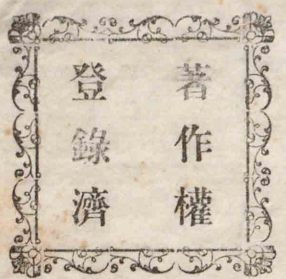 著作權
登錄濟